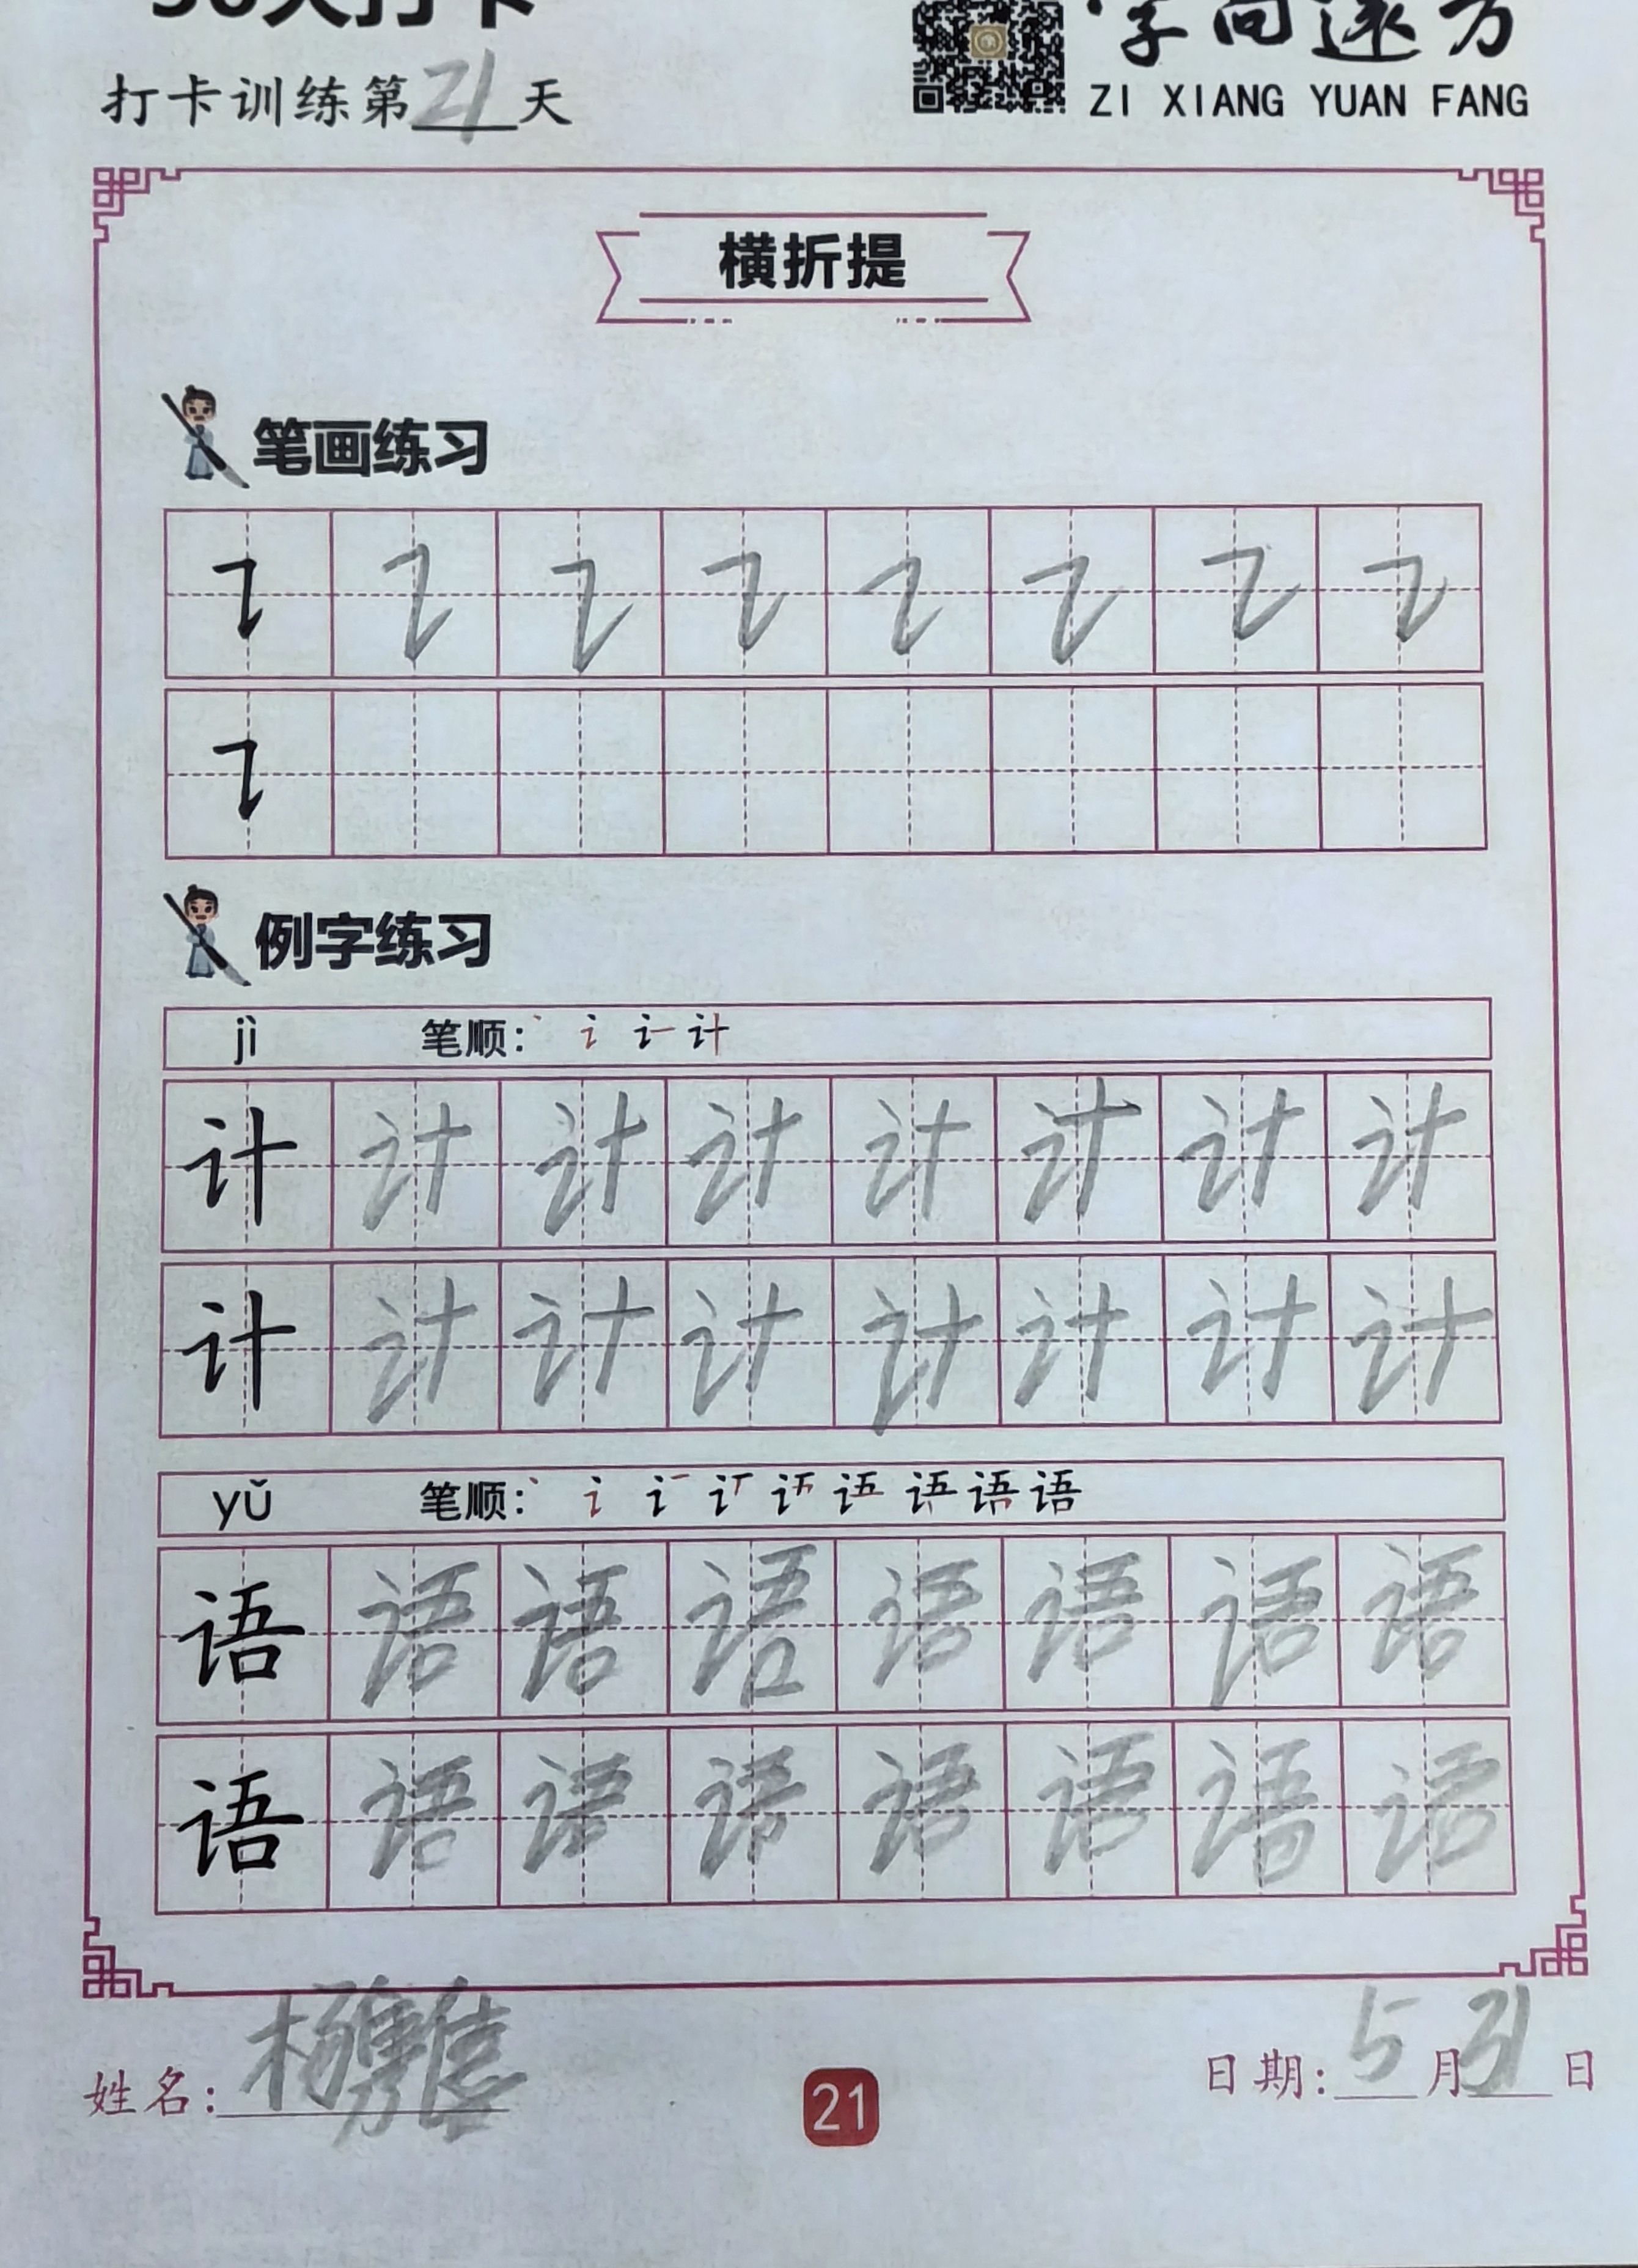 打卡训练第21天
字向远方
ZI XIANG YUAN FANG
横折提
笔画练习
例字练习
jì 笔顺:
计 计 计 计 计 计 计 计
计 计 计 计 计 计 计 计
yǔ 笔顺:
语 语 语 语 语 语 语 语
语 语 语 语 语 语 语 语
姓名:
21
日期: 5月31日